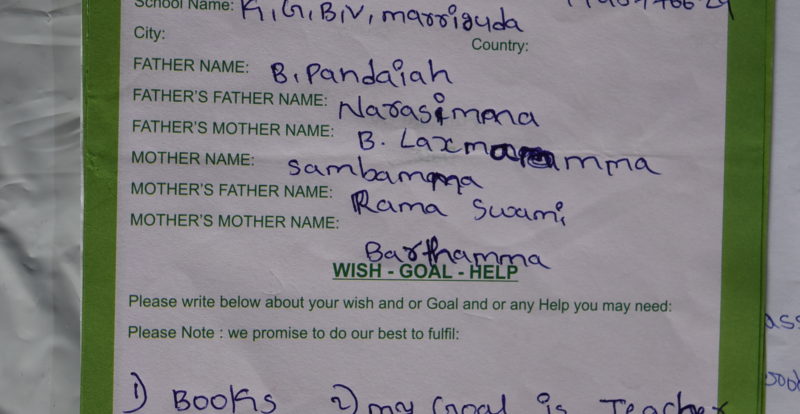 School Name: K.G.B.V, marriguda
City: Country:
FATHER NAME: B. Pandaiah
FATHER'S FATHER NAME: Narasimma
FATHER'S MOTHER NAME: B. Laxmamma
MOTHER NAME: Sambamma
MOTHER'S FATHER NAME: Rama Swami
MOTHER'S MOTHER NAME: Barthamma
WISH - GOAL - HELP
Please write below about your wish and or Goal and or any Help you may need:
Please Note : we promise to do our best to fulfil:
1) BOOKS 2) my Goal is Teacher